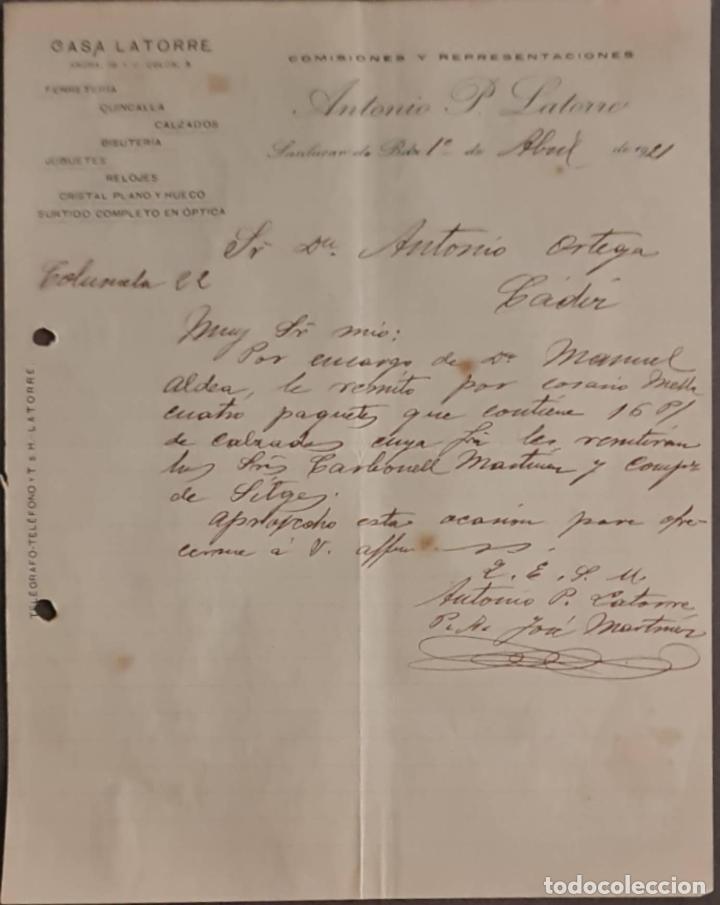 CASA LATORRE
COLÓN, 8
FERRETERÍA
QUINCALLA
CALZADOS
BISUTERÍA
JUGUETES
RELOJES
CRISTAL PLANO Y HUECO
SURTIDO COMPLETO EN ÓPTICA
COMISIONES Y REPRESENTACIONES
Antonio P. Latorre
Sanlucar de Bda 1º de Abril de 1921
Sr Dn. Antonio Ortega
Columela 22
Cádiz
Muy Sr mio:
Por encargo de Dn Manuel
Aldea, le remito por cosario
cuatro paquetes que contiene 16 P/
de calzados cuya les remitirán
los Srs Carbonell Martínez y Compª
de Sitges.
Aprovecho esta ocasión para ofre-
cerme á V. affmo s. s.
Q. E. S. M.
Antonio P. Latorre
P. A. José Martínez
TELÉGRAFO-TELÉFONO Y T S H-LATORRE.
todocoleccion